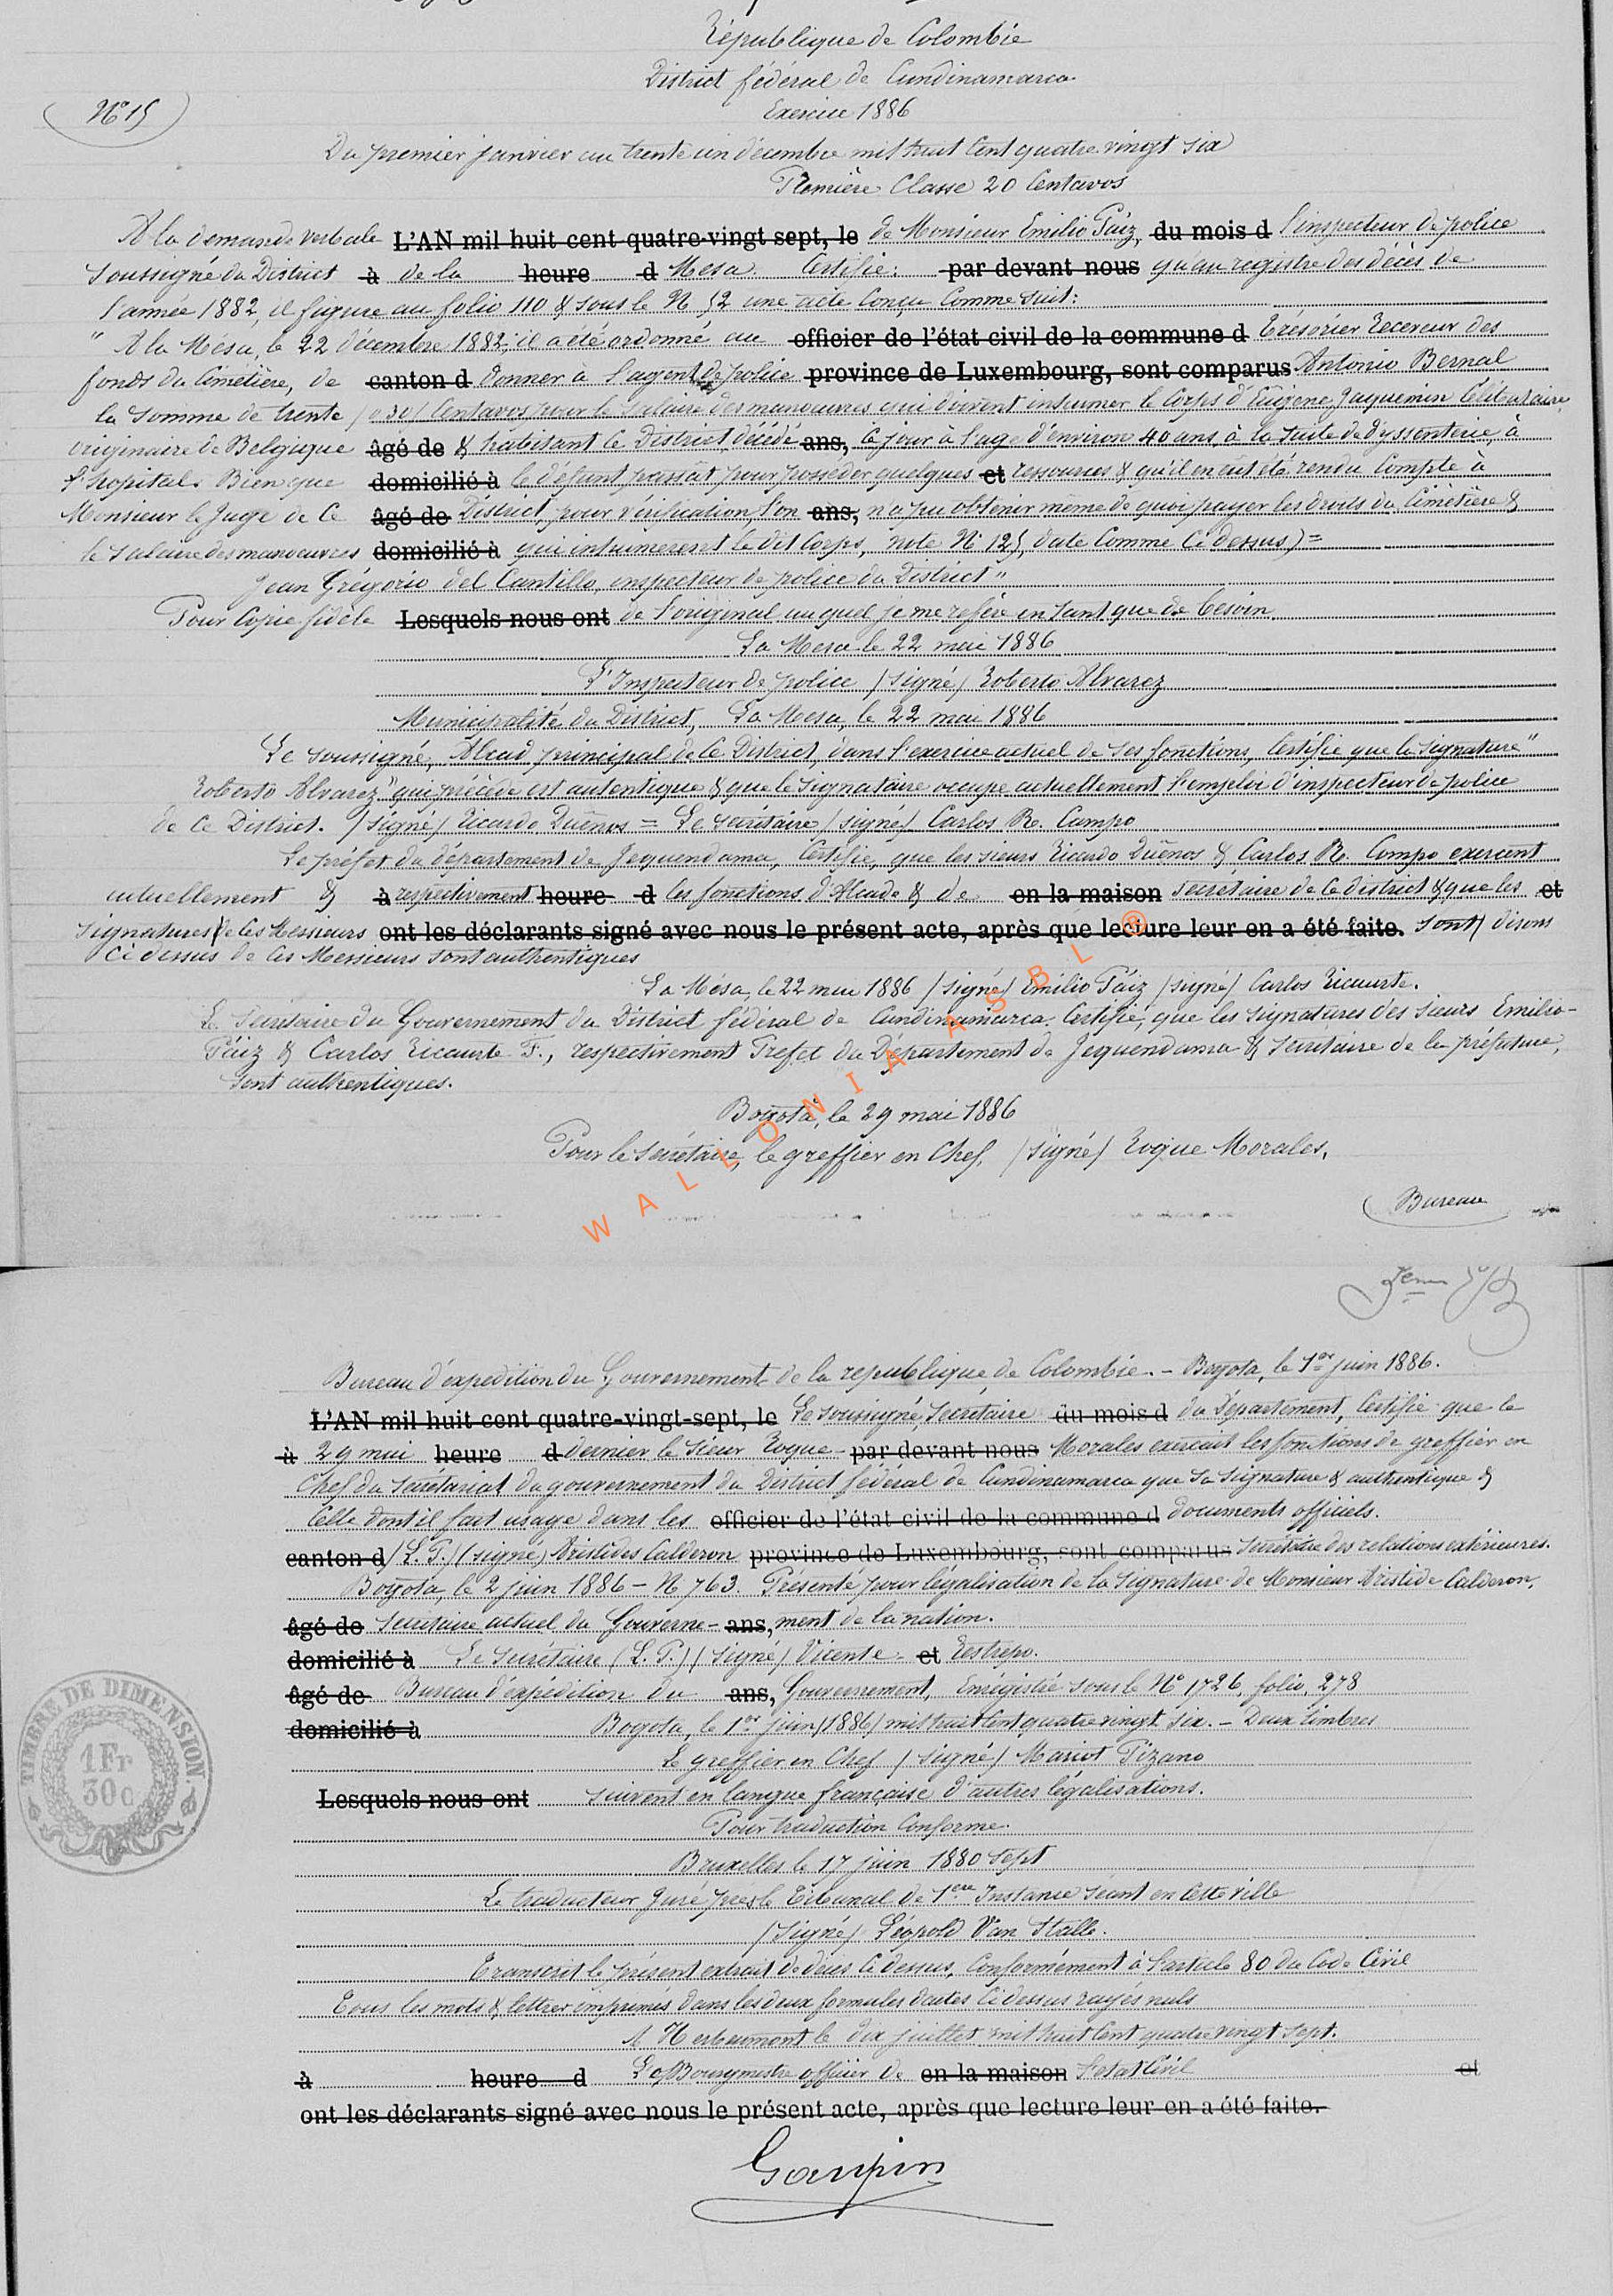 République de Colombie
District fédéral de Cundinamarca
N° 15
Exercice 1886
Du premier janvier au trente un décembre mil huit cent quatre vingt six
Première Classe 20 Centavos
A la demande verbale L'AN mil huit cent quatre-vingt sept, le de Monsieur Emilio Païz, du mois d l'inspecteur de police
soussigné du District à de la heure d Mesa Certifie: par devant nous qu'au registre des décès de
l'année 1882, il figure au folio 110 & sous le N° 52 une acte Conçu Comme suit:
" A la Mesa, le 22 décembre 1882, il a été ordonné au officier de l'état civil de la commune d Trésorier Receveur des
fonds du Cimetière, de canton d donner à l'agent de police province de Luxembourg, sont comparus Antonio Bernal
la somme de trente (0.30) Centavos pour le salaire des manœuvres qui doivent inhumer le Corps d'Eugène Jaquemin Célibataire,
originaire de Belgique âgé de & habitant le District, décédé ans, ce jour à l'age d'environ 40 ans, à la suite de dyssenterie, à
l'hopital. Bien que domicilié à le défunt passât pour posseder quelques et ressources & qu'il en eût été rendu Compte à
Monsieur le Juge de Ce âgé de District, pour vérification l'on ans, n'a pu obtenir même de quoi payer les droits du Cimetière &
le salaire des manœuvres domicilié à qui inhumèrent le dit Corps, note N° 125, date Comme Ci dessus) =
Jean Grégorio del Cantillo, inspecteur de police du District "
Pour Copie fidèle Lesquels nous ont de l'original auquel je me refère en tant que de besoin
La Mesa le 22 mai 1886
L'Inspecteur de police (signé) Roberto Alvarez
Municipalité du District, La Mesa, le 22 mai 1886
Le soussigné, Alcad principal de Ce District, dans l'exercice actuel de ses fonctions, Certifie que la signature "
Roberto Alvarez " qui précède est autentique & que le signataire occupe actuellement l'emploi d'inspecteur de police
de Ce District. (signé) Ricardo Dueños = Le secrétaire (signé) Carlos R. Campo
Le préfet du département de Tequendama, Certifie, que les sieurs Ricardo Dueños & Carlos R. Campo exercent
actuellement & à respectivement heure d les fonctions d'Alcade & de en la maison secrétaire de Ce district & que les et
signatures de Ces Messieurs ont les déclarants signé avec nous le présent acte, après que lecture leur en a été faite. sont) disons
Ci dessus de Ces Messieurs sont authentiques
La Mésa, le 22 mai 1886 (signé) Emilio Païz (signé) Carlos Ricaurte.
Le Secrétaire du Gouvernement du District fédéral de Cundinamarca. Certifie, que les signatures des sieurs Emilio-
Païz & Carlos Ricaurte F., respectivement Prefet du Département de Tequendama & secrétaire de la préfecture,
sont authentiques.
Bogota, le 29 mai 1886
Pour le secrétaire, le greffier en Chef, (signé) Roque Morales,
Bureau
WALLONIA ASBL ®
Bureau d'expedition du Gouvernement de la republique de Colombie. - Bogota, le 1er juin 1886.
L'AN mil huit cent quatre-vingt-sept, le Le soussigné, Secrétaire du mois d du Département, Certifie que le
à 29 mai heure d dernier le sieur Roque par devant nous Morales exerçait les fonctions de greffier en
Chef du secrétariat du gouvernement du District fédéral de Cundinamarca que sa signature & authentique &
Celle dont il fait usage dans les officier de l'état civil de la commune d documents officiels.
canton d (L.P.) (signé) Aristides Calderon province de Luxembourg, sont comparus Secrétaire des relations extérieures.
Bogota, le 2 juin 1886 - N° 763. Présenté pour légalisation de la signature de Monsieur Aristide Calderon,
âgé de Secrétaire actuel du Gouverne- ans, ment de la nation.
domicilié à Le Secrétaire (L.P.) (signé) Vicente et Restrepo.
âgé de Bureau d'expédition du ans, Gouvernement, Enrégistré sous le N° 1726, folio, 278
domicilié à Bogota, le 1er juin (1886) mil huit cent quatre vingt six. - Deux timbres
Le greffier en Chef (signé) Mariot Pizano
Lesquels nous ont suivent en langue française d'autres légalisations.
Pour traduction Conforme.
Bruxelles le 17 juin 1880 sept
Le traducteur Juré près le Tribunal de 1ère Instance séant en Cette ville
(signé) Léopold Van Stalle.
Transcrit le présent extrait de décès Ci dessus, Conformément à l'article 80 du Code Civil
Tous les mots & lettres imprimés dans les deux formules d'actes Ci dessus rayés nuls
A Herbeumont le dix juillet mil huit Cent quatre vingt sept.
à heure d Le Bourgmestre officier de en la maison l'état Civil et
ont les déclarants signé avec nous le présent acte, après que lecture leur en a été faite.
Goupin
TIMBRE DE DIMENSION.
1 Fr
30 c